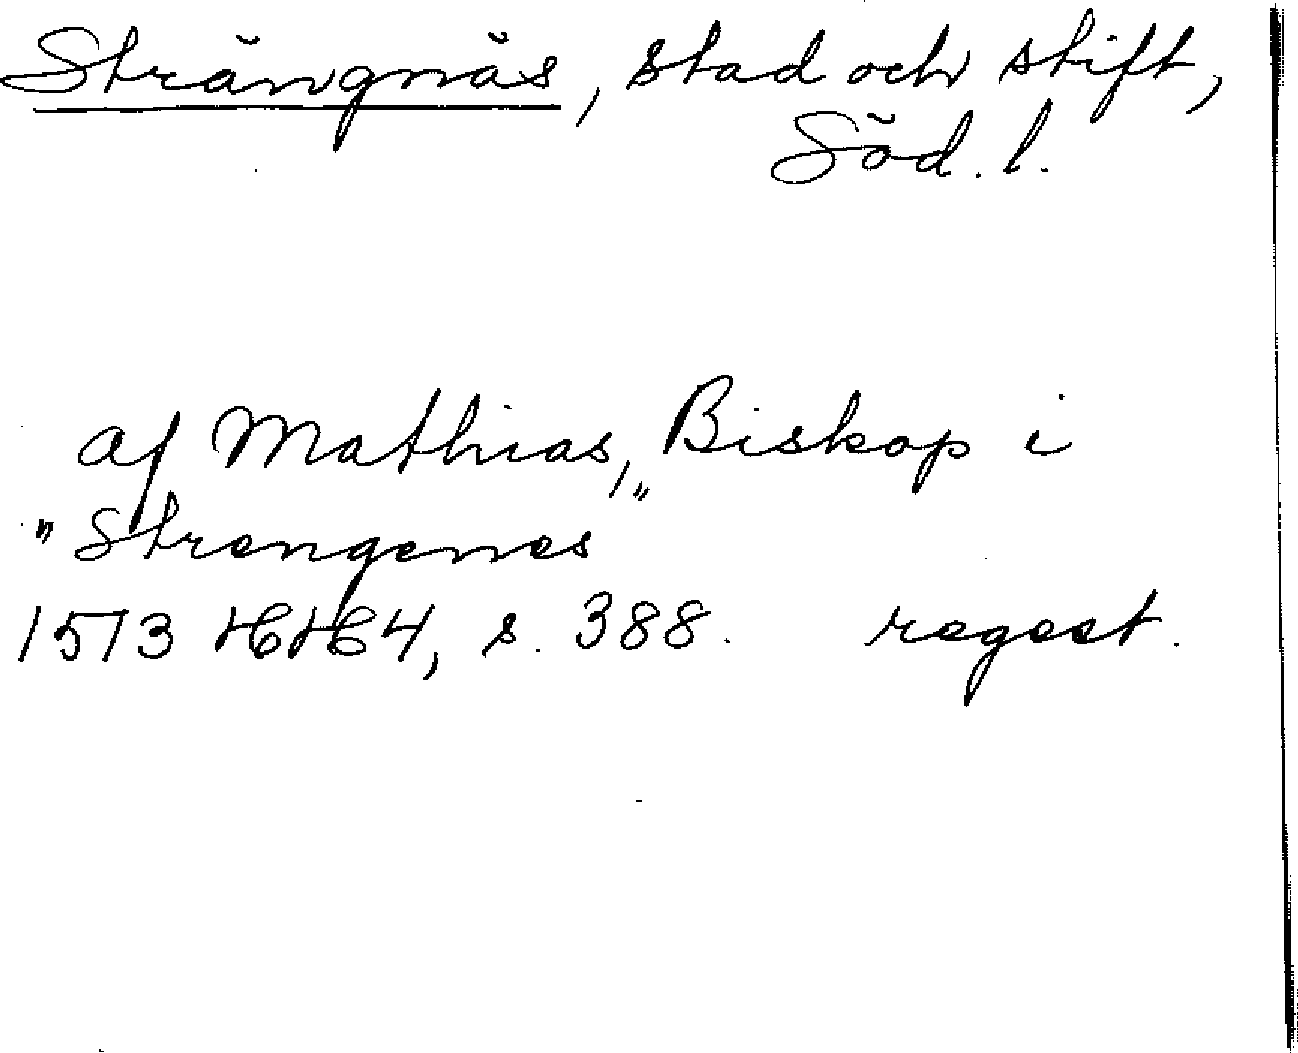 Strängnäs, stad och stift,
Söd. l.
af Mathias, Biskop i
"Strengenes"
1513 HH 4, s. 388. regest.